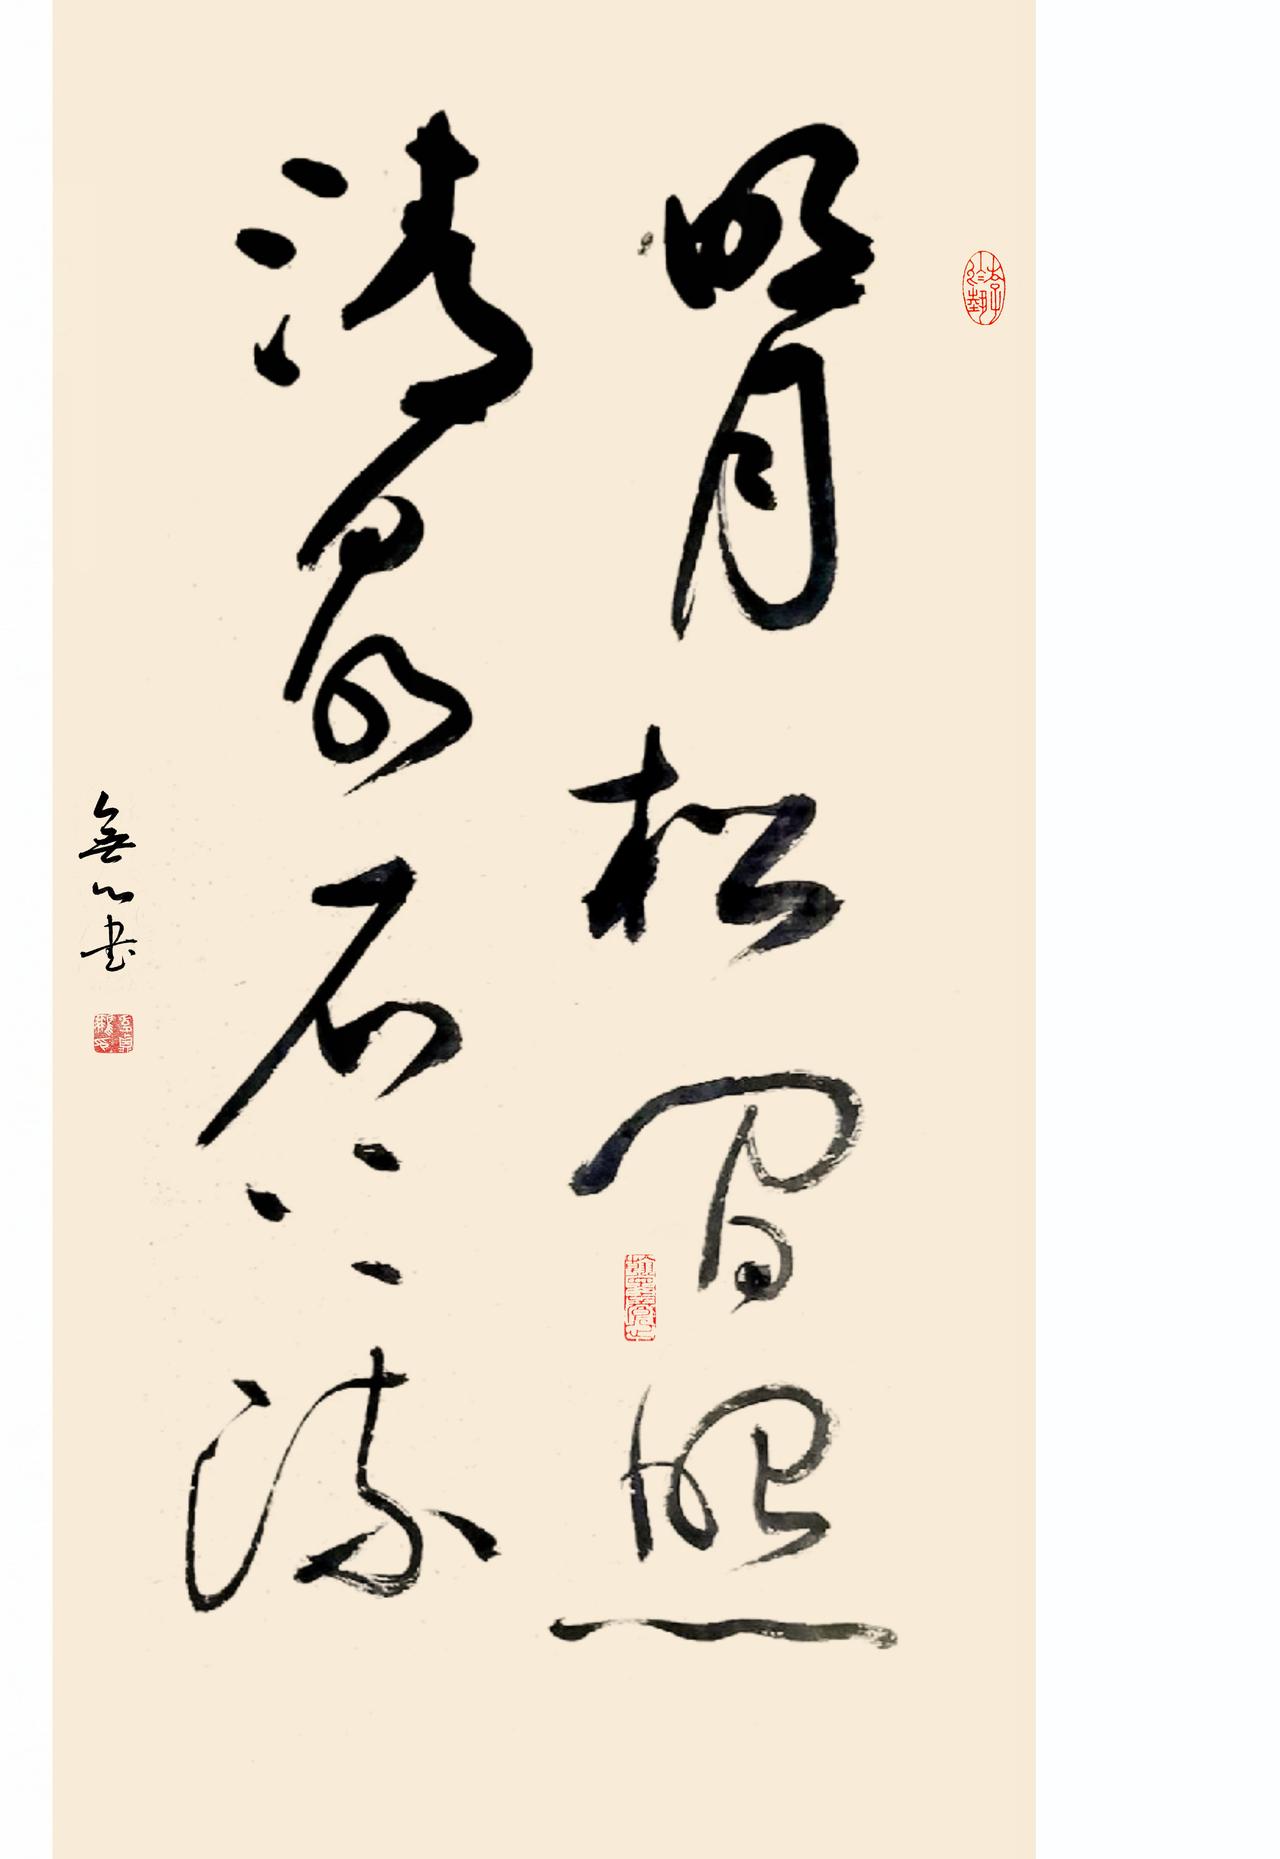 明月松间照
清泉石上流
無心书